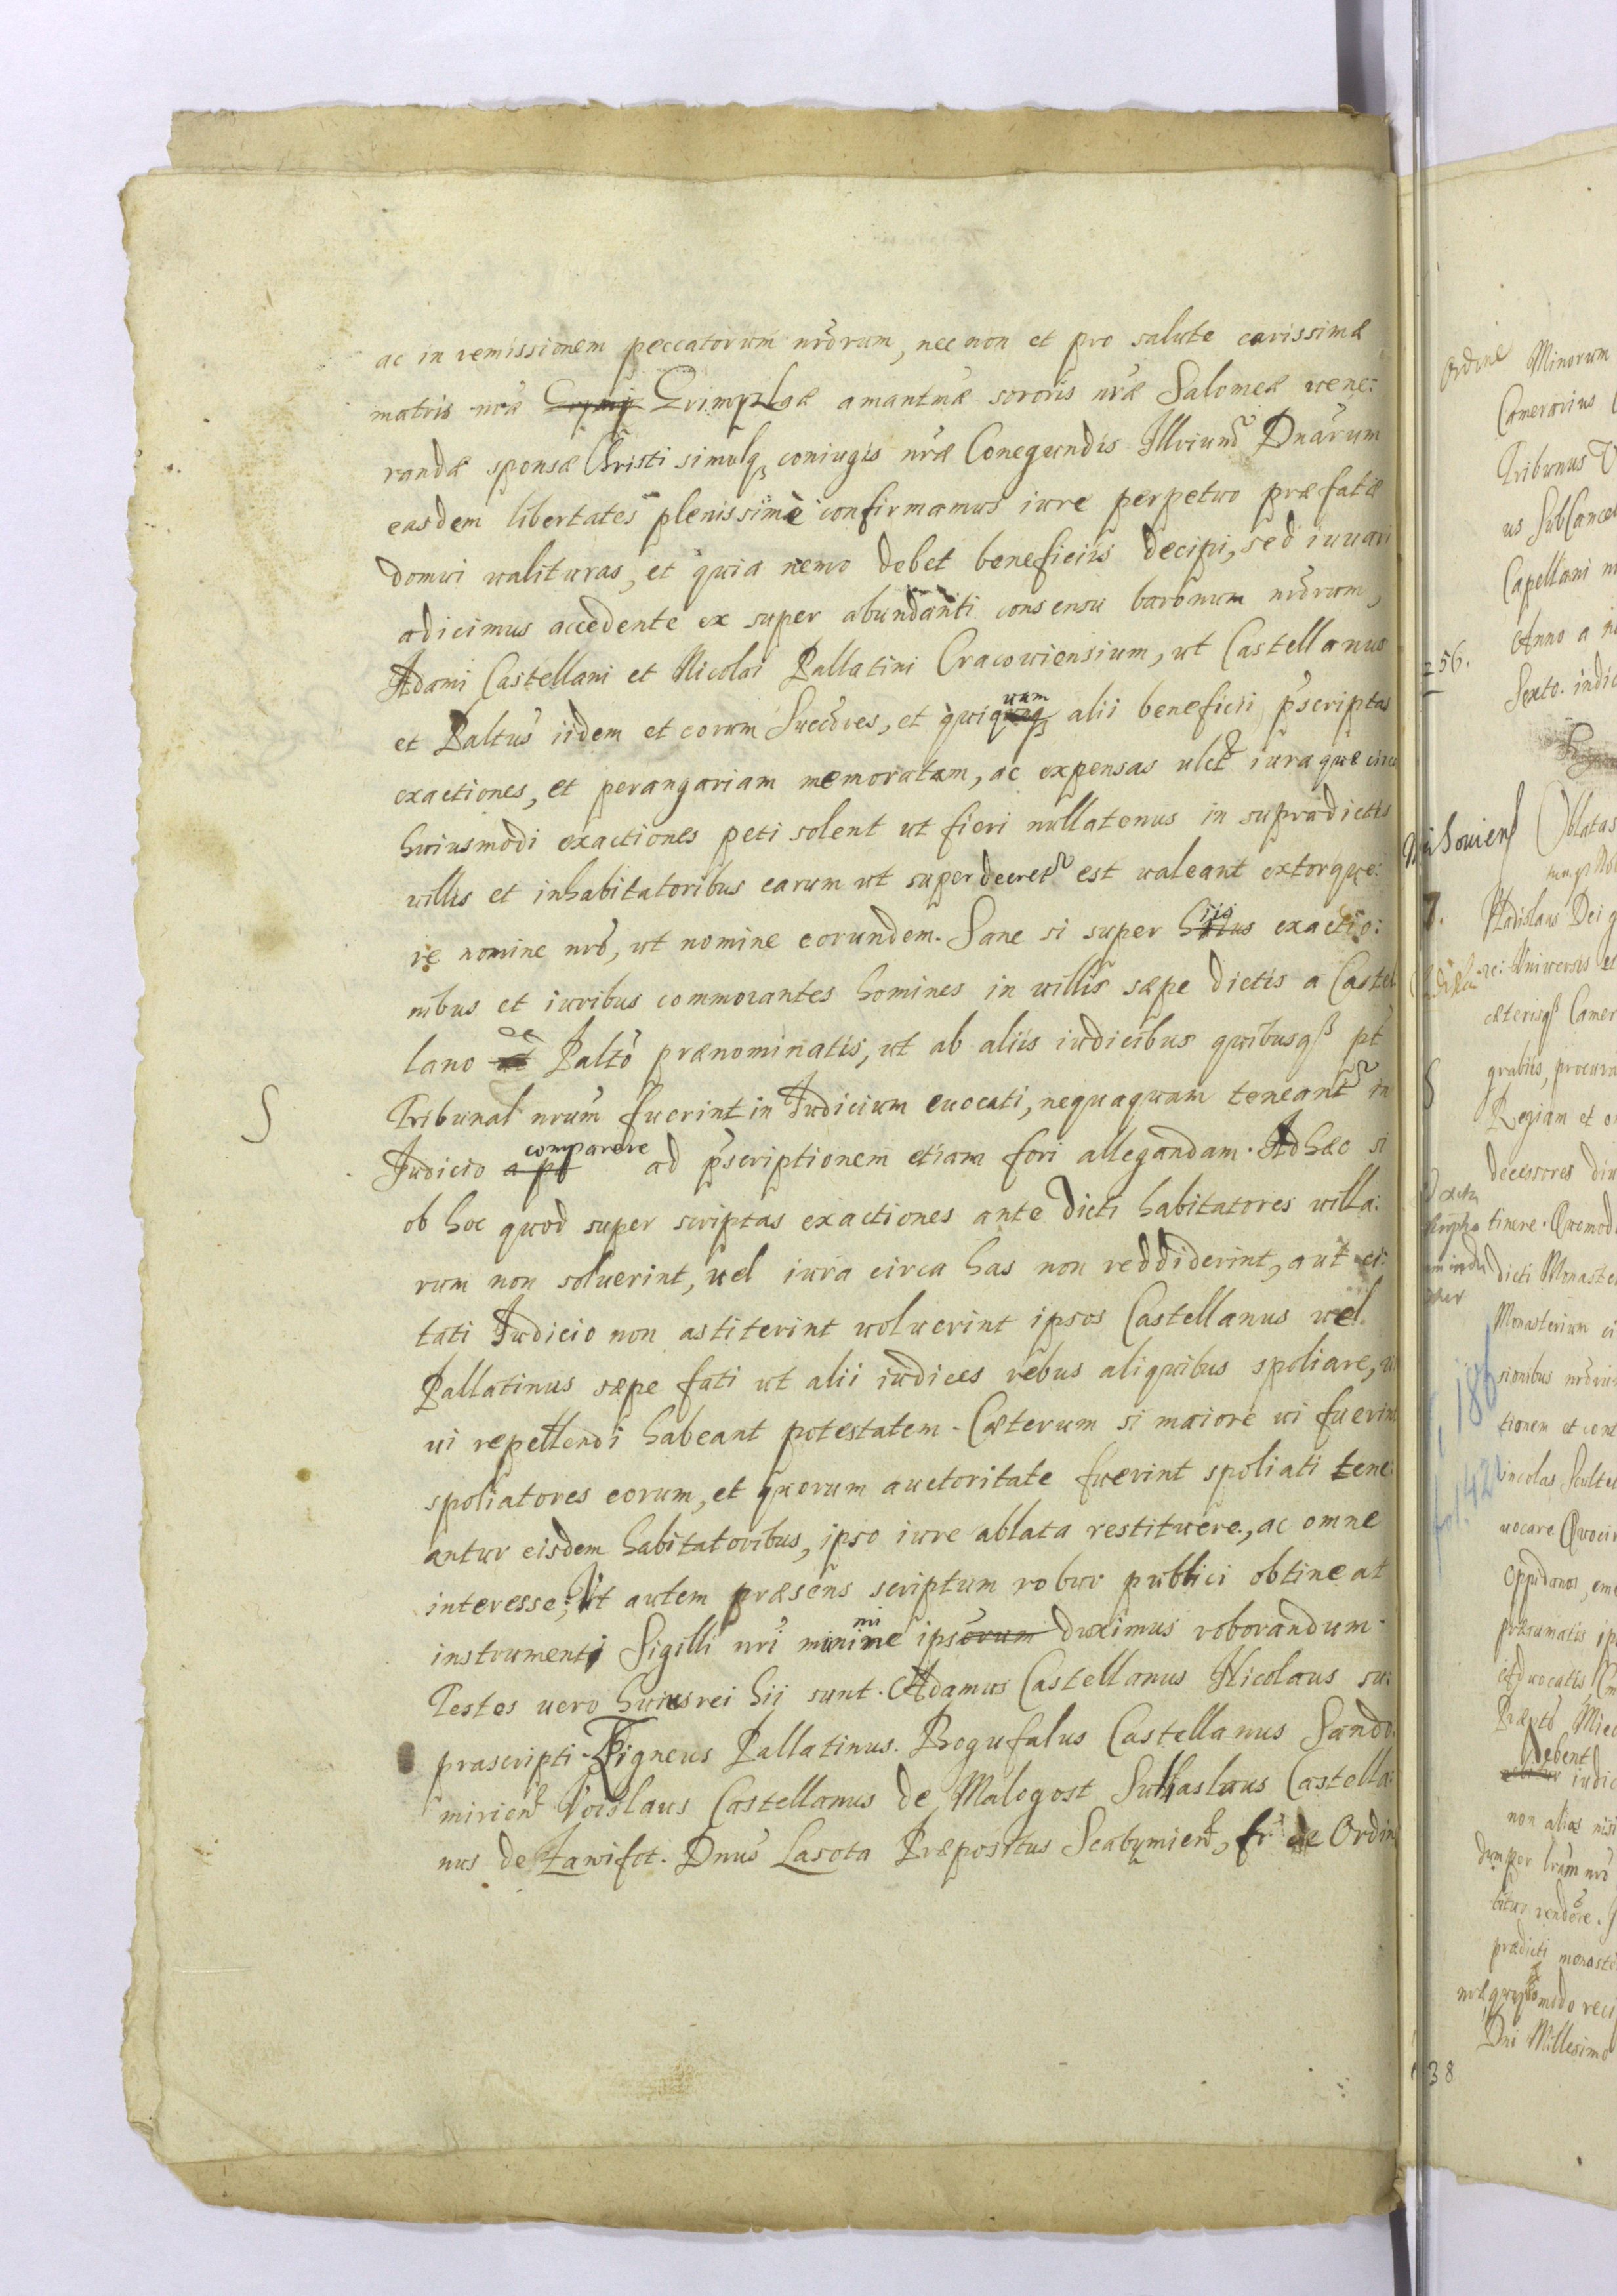 ac in remissionem peccatorum nr̃orum, nec non et pro salute carissimæ
matris nr̃æ Grimyslæ amantmæ sororis nr̃æ Salomeæ uene:
randæ sponsæ Christi simulq; coniugis nr̃æ Conegundis Illrium Dnarum
easdem libertates plenissimè confirmamus iure perpetuo præfatæ
domui ualituras, et quia nemo debet beneficiis decipi, sed iuuari
adicimus accedente ex super abundanti consensu baronum nr̃orum,
Adami Castellani et Nicolai Pallatini Cracouiensium, ut Castellanus
et Paltus iidem et eorum Succ̃ores, et quiquam alii beneficii p̃scriptas
exactiones, et perangariam memoratam, ac expensas ulct iuraque circa
huiusmodi exactiones peti solent ut fieri nullatenus in supradictis
uillis et inhabitatoribus earum ut super decret est ualeant extorque:
re nomine nr̃o, ut nomine eorundem. Sane si super hiis exactio:
nibus et iuribus commorantes homines in uillis sæpe dictis a Castel
lano et Palto prænominatis, ut ab aliis iudicibus quibusq; pt
Tribunal nrum fuerint in Judicium euocati, nequaquam teneant in
Judicio comparere ad p̃scriptionem etiam fori allegandam. Ad hæc si
ob hoc quod super scriptas exactiones ante dicti habitatores uilla:
rum non soluerint, uel iura circa has non reddiderint, aut ci:
tati Judicio non astiterint uoluerint ipsos Castellanus uel
Pallatinus sæpe fati ut alii iudices rebus aliquibus spoliare, ui
ui repellendi habeant potestatem. Cæterum si maiore ui fuerint
spoliatores eorum, et quorum auctoritate fuerint spoliati tene:
antur eisdem habitatoribus, ipso iure ablata restituere, ac omne
interesse; Ut autem præsens scriptum robur publici obtineat
instrumenti Sigilli nri minimine ipsorum duximus roborandum.
Testes uero huius rei hii sunt. Adamus Castellanus Nicolaus su:
prascripti. Signeus Pallatinus. Bogufalus Castellanus Sando
mirien Voislaus Castellanus de Malogost Sulislaus Castella:
nus de Zawifot. Dnus Lasota Præpositus Scabymien, fr de Ordin
S
Ordine Minorum
Camerarius
Tribunus
us SubCance
Capellani
Anno a
256.
Sexto. indic
Oblatas
7.
Vladislaus Dei g
Uniuersis et
cæterisq; Camer
grabiis, procura
Regiam et
decessores
tinere. Quemod
dicti Monaste
Monasterium
sionibus
tionem et
186
incolas, Sculte
uocare. Quocir
Oppidanos,
præsumatis
debent
iudic
non alias nisi
dum per
prædicti monaste
Dni Millesimo
38